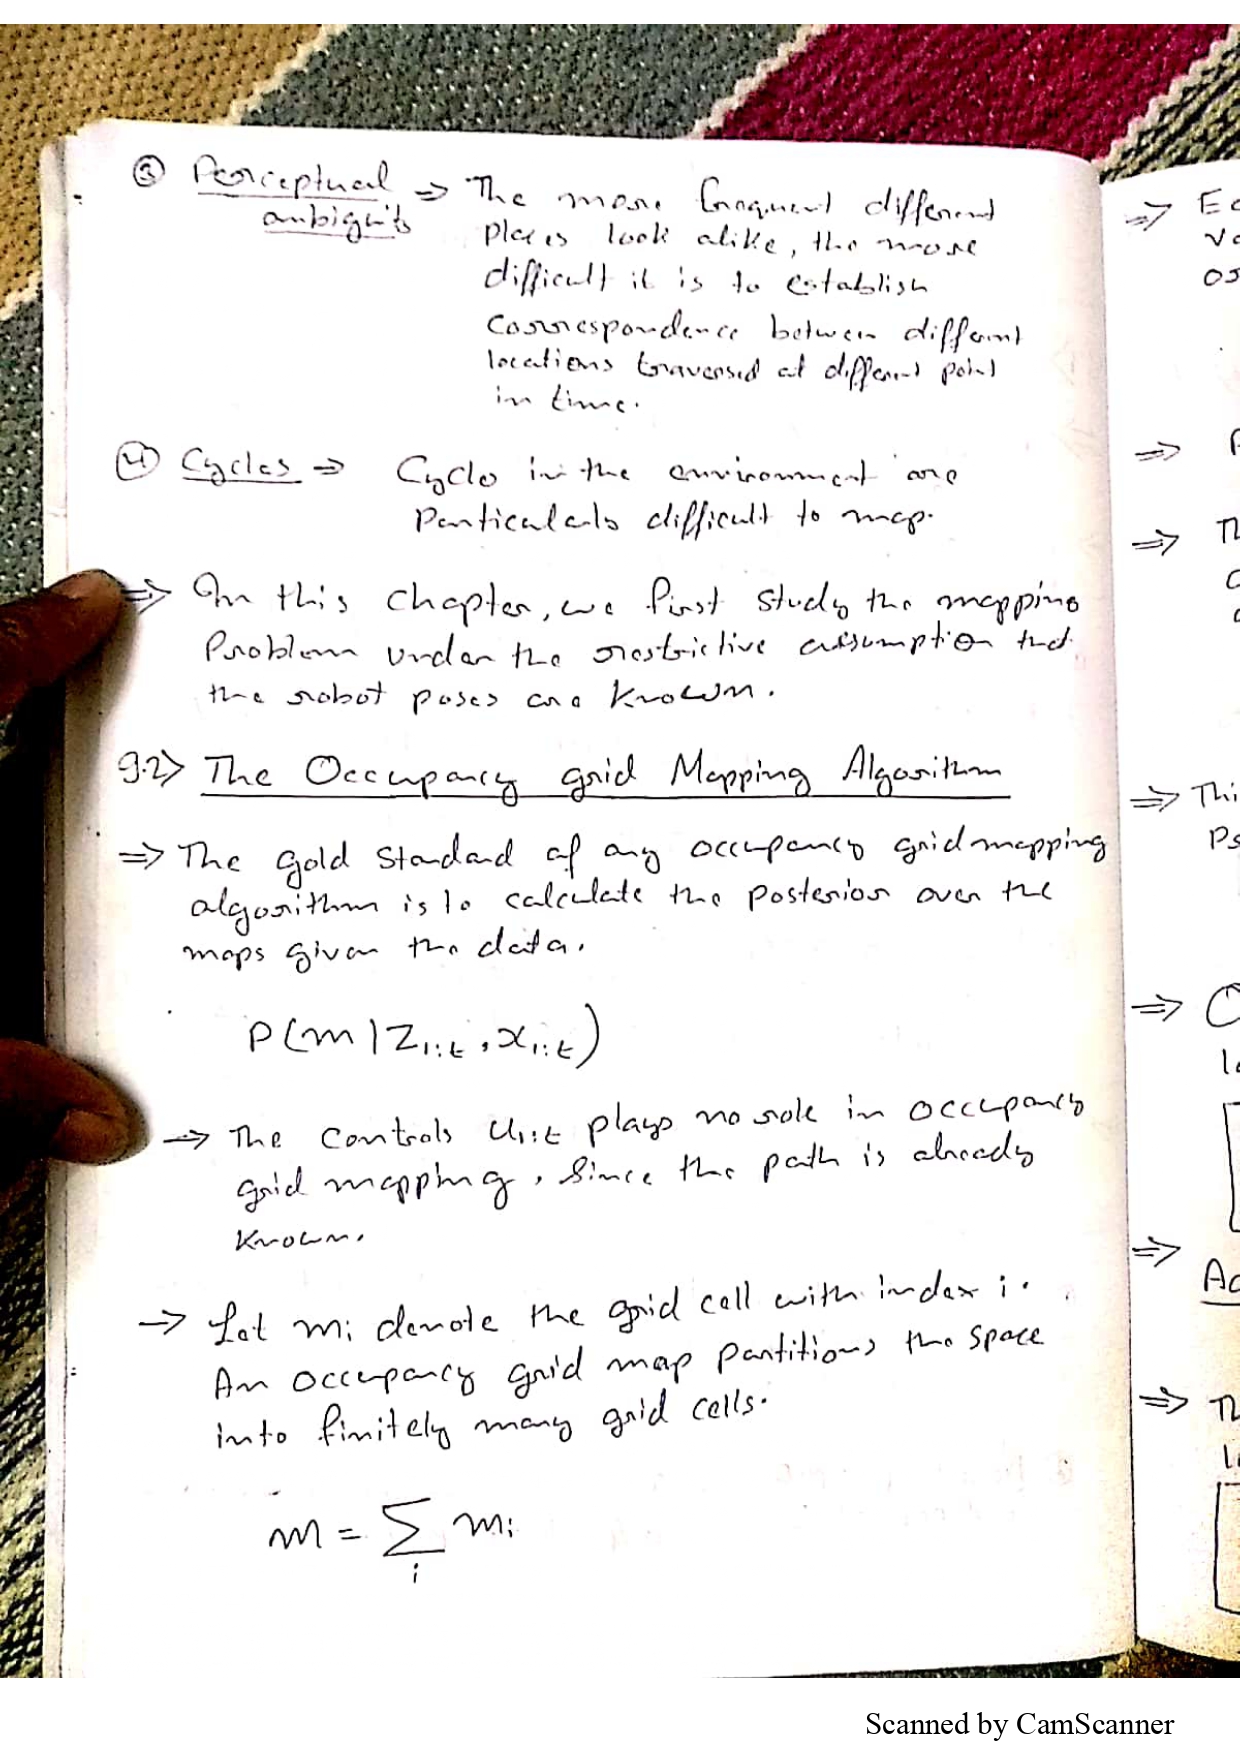 ③ Perceptual ⇒ The more frequent different
ambiguity places look alike, the more
difficult it is to establish
correspondence between different
locations traversed at different point
in time.
④ Cycles ⇒ Cycle in the environment are
Particularly difficult to map.
⇒ In this chapter, we first study the mapping
Problem under the restrictive assumption that
the robot poses are known.
9.2> The Occupancy grid Mapping Algorithm
⇒ The gold standard of any occupancy grid mapping
algorithm is to calculate the posterior over the
maps given the data.
P(m | Z1:t, x1:t)
→ The controls U1:t plays no role in occupancy
grid mapping, since the path is already
known.
→ Let mi denote the grid cell with index i.
An occupancy grid map partitions the space
into finitely many grid cells.
m = Σ mi
i
⇒
⇒
⇒
⇒ Thi
Ps
⇒
⇒
Ac
⇒
Scanned by CamScanner